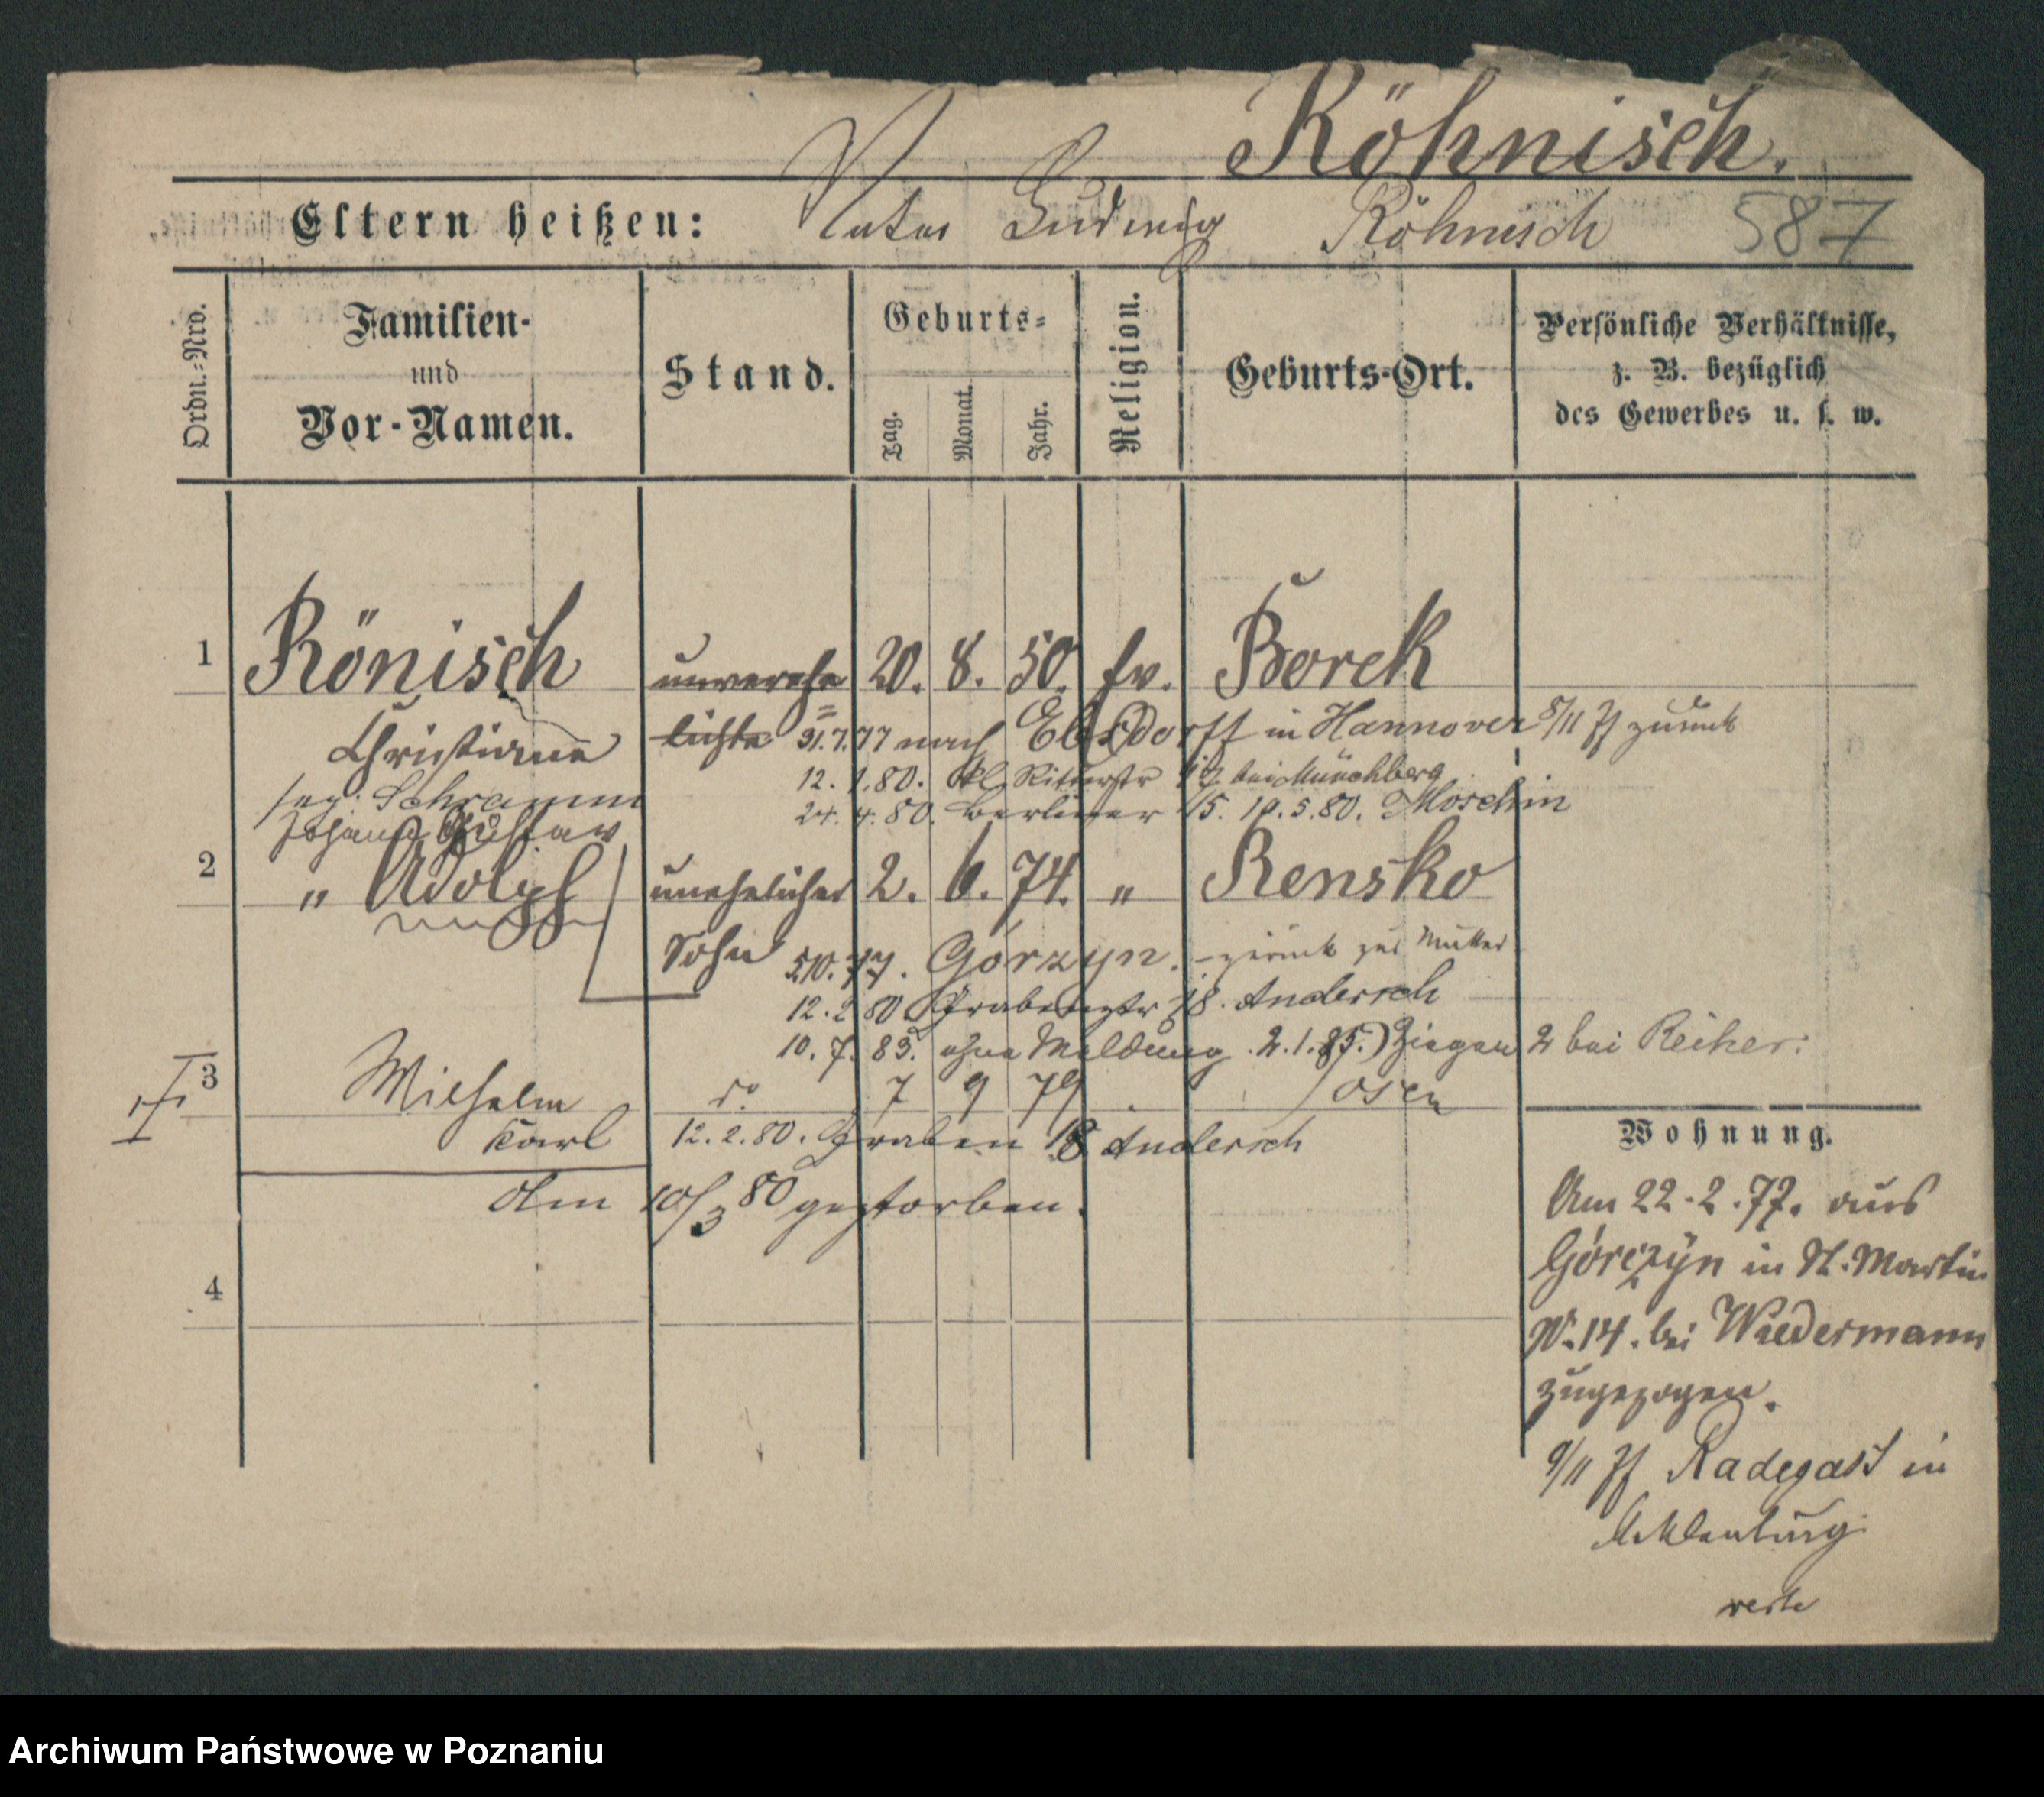 Röhnisch.
Eltern heißen: Vater Ludwig Röhnisch 587
Ordn.-Nro.
Familien-
und
Vor-Namen.
Stand.
Geburts-
Tag.
Monat.
Jahr.
Religion.
Geburts-Ort.
Persönliche Verhältnisse,
z. B. bezüglich
des Gewerbes u. s. w.
1 Rönisch unverehe 20. 8. 50. ev. Borek
Christiane lichte 31.7.77 nach Ebsdorff in Hannover 5/11 77 zurück
12. 1. 80. kl. Ritterstr bei Münchberg
Schramm
24. 4. 80. Berliner 15. 19. 5. 80. Moschin
Johann Gustav
2 " Adolph unehelicher 2. 6. 74. " Rensko
Sohn 5 10. 77. Górzyn. - zurück zur Mutter
12. 2 80 Grabenstr 18. Andersch
10. 7. 83. ohne Meldung. 2. 1. 85. Ziegen 2 bei Reiher.
3 Wilhelm do 7 9 79 Posen
Karl 12. 2. 80. Graben 18 Andersch
Am 10/3 80 gestorben.
4
Wohnung.
Am 22.2.77. aus
Górczyn in St. Martin
No. 14. bei Wiedermann
zugezogen.
9/11 77 Radegast in
Meklenburg
Archiwum Państwowe w Poznaniu